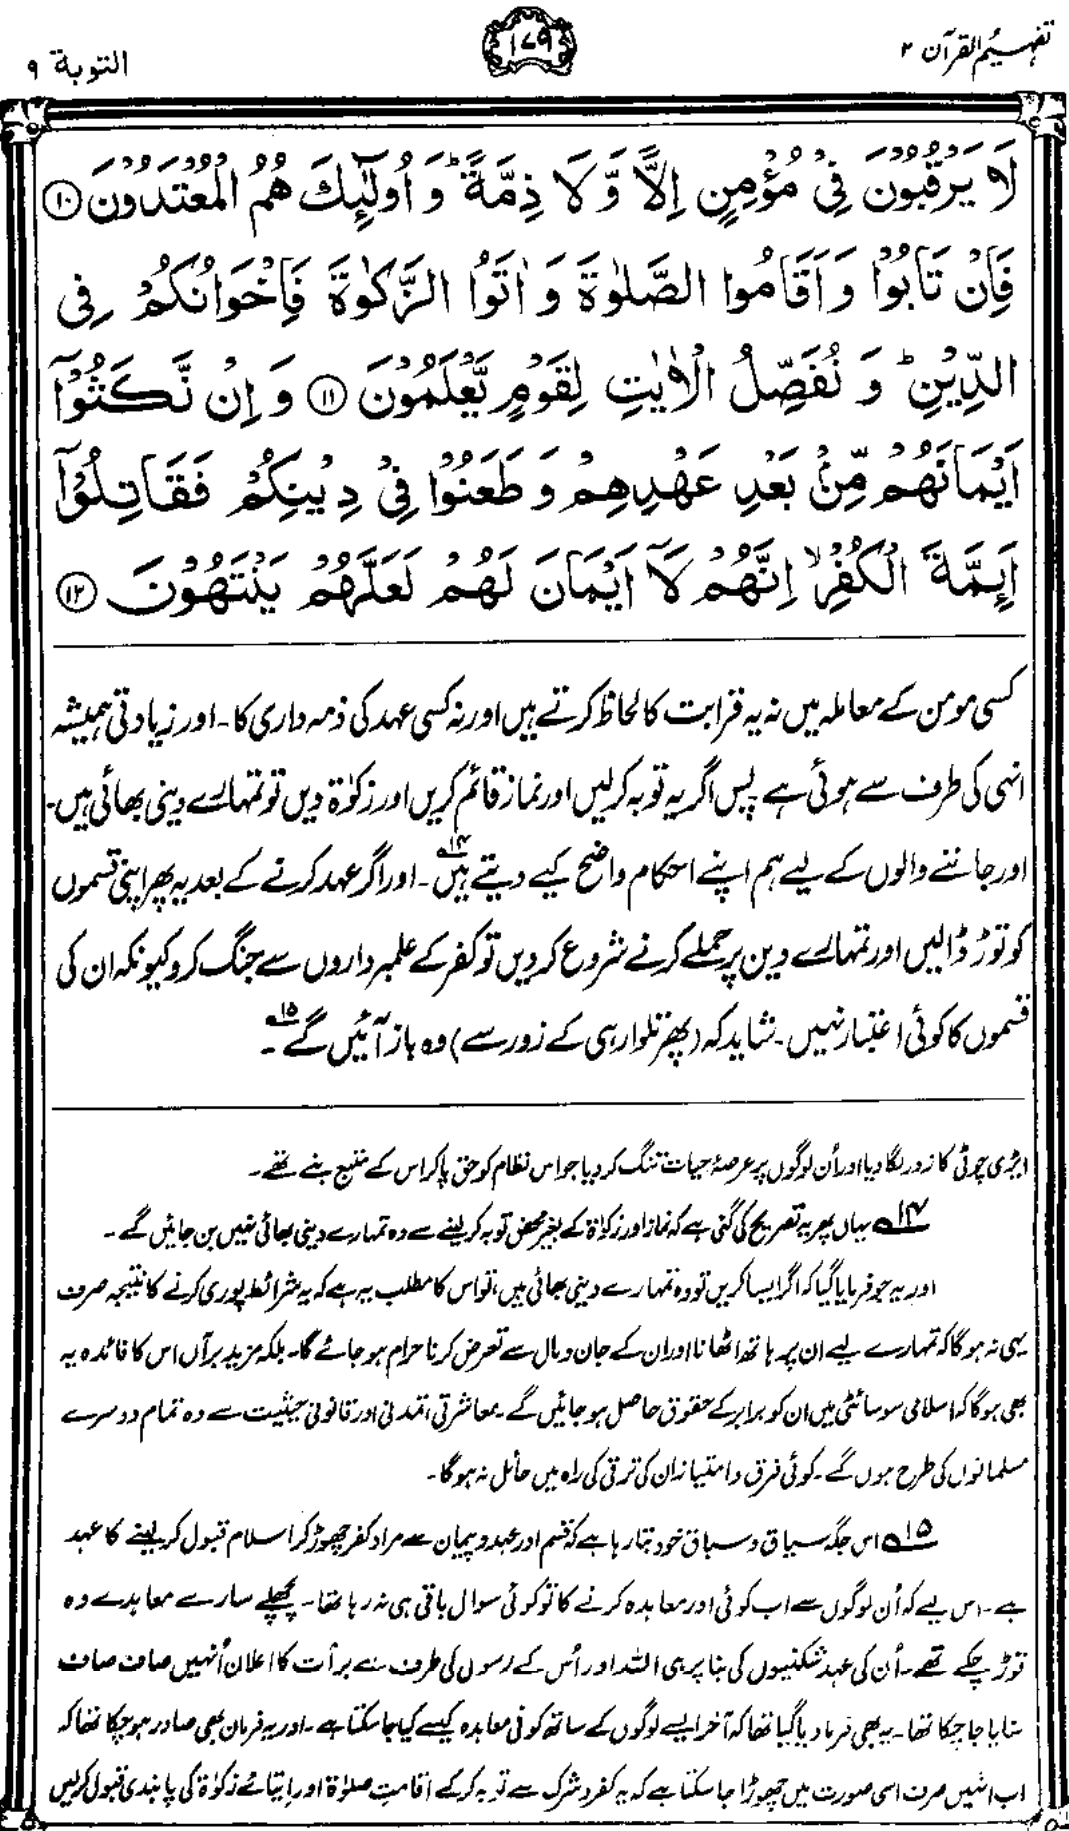 تفہیم القرآن ۲
۱۷۹
التوبة ۹
لَا يَرْقُبُوْنَ فِيْ مُؤْمِنٍ اِلًّا وَّ لَا ذِمَّةً ؕ وَ اُولٰٓئِكَ هُمُ الْمُعْتَدُوْنَ ⑩
فَاِنْ تَابُوْا وَ اَقَامُوا الصَّلٰوةَ وَ اٰتَوُا الزَّكٰوةَ فَاِخْوَانُكُمْ فِي
الدِّيْنِ ؕ وَ نُفَصِّلُ الْاٰيٰتِ لِقَوْمٍ يَّعْلَمُوْنَ ⑪ وَ اِنْ نَّكَثُوْٓا
اَيْمَانَهُمْ مِّنْۢ بَعْدِ عَهْدِهِمْ وَ طَعَنُوْا فِيْ دِيْنِكُمْ فَقَاتِلُوْٓا
اَئِمَّةَ الْكُفْرِ ۙ اِنَّهُمْ لَآ اَيْمَانَ لَهُمْ لَعَلَّهُمْ يَنْتَهُوْنَ ⑫
کسی مومن کے معاملہ میں نہ یہ قرابت کا لحاظ کرتے ہیں اور نہ کسی عہد کی ذمہ داری کا۔ اور زیادتی ہمیشہ
انہی کی طرف سے ہوئی ہے پس اگر یہ توبہ کرلیں اور نماز قائم کریں اور زکوٰۃ دیں تو تمہارے دینی بھائی ہیں۔
اور جاننے والوں کے لیے ہم اپنے احکام واضح کیے دیتے ہیں۱۴۔ اور اگر عہد کرنے کے بعد یہ پھر اپنی قسموں
کو توڑ ڈالیں اور تمہارے دین پر حملے کرنے شروع کر دیں تو کفر کے علمبرداروں سے جنگ کرو کیونکہ ان کی
قسموں کا کوئی اعتبار نہیں۔ شاید کہ (پھر تلوار ہی کے زور سے) وہ باز آئیں گے۱۵۔
ایڑی چوٹی کا زور لگا دیا اور اُن لوگوں پر عرصۂ حیات تنگ کر دیا جو اس نظام کو حق پاکر اس کے متبع بنے تھے۔
۱۴؎ یہاں پھر یہ تصریح کی گئی ہے کہ نماز اور زکوٰۃ کے بغیر محض توبہ کر لینے سے وہ تمہارے دینی بھائی نہیں بن جائیں گے۔
اور یہ جو فرمایا گیا کہ اگر ایسا کریں تو وہ تمہارے دینی بھائی ہیں، تو اس کا مطلب یہ ہے کہ یہ شرائط پوری کرنے کا نتیجہ صرف
یہی نہ ہوگا کہ تمہارے لیے ان پر ہاتھ اٹھانا اور ان کے جان و مال سے تعرض کرنا حرام ہو جائے گا۔ بلکہ مزید برآں اس کا فائدہ یہ
بھی ہوگا کہ اسلامی سوسائٹی میں ان کو برابر کے حقوق حاصل ہو جائیں گے۔ معاشرتی، تمدنی اور قانونی حیثیت سے وہ تمام دوسرے
مسلمانوں کی طرح ہوں گے۔ کوئی فرق و امتیاز ان کی ترقی کی راہ میں حائل نہ ہوگا۔
۱۵؎ اس جگہ سیاق و سباق خود بتا رہا ہے کہ قسم اور عہد و پیمان سے مراد کفر چھوڑ کر اسلام قبول کر لینے کا عہد
ہے۔ اس لیے کہ اُن لوگوں سے اب کوئی اور معاہدہ کرنے کا تو کوئی سوال باقی ہی نہ رہا تھا۔ پچھلے سارے معاہدے وہ
توڑ چکے تھے۔ اُن کی عہد شکنیوں کی بنا پر ہی اللہ اور اُس کے رسول کی طرف سے برأت کا اعلان اُنہیں صاف صاف
سنایا جا چکا تھا۔ یہ بھی فرما دیا گیا تھا کہ آخر ایسے لوگوں کے ساتھ کوئی معاہدہ کیسے کیا جاسکتا ہے۔ اور یہ فرمان بھی صادر ہو چکا تھا کہ
اب انہیں صرف اسی صورت میں چھوڑا جاسکتا ہے کہ یہ کفر و شرک سے توبہ کرکے اقامتِ صلوٰۃ اور ایتائے زکوٰۃ کی پابندی قبول کرلیں